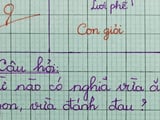 9
Lời phê
Con giỏi
Câu hỏi:
nào có nghĩa vừa ă
on, vừa đánh đau ?